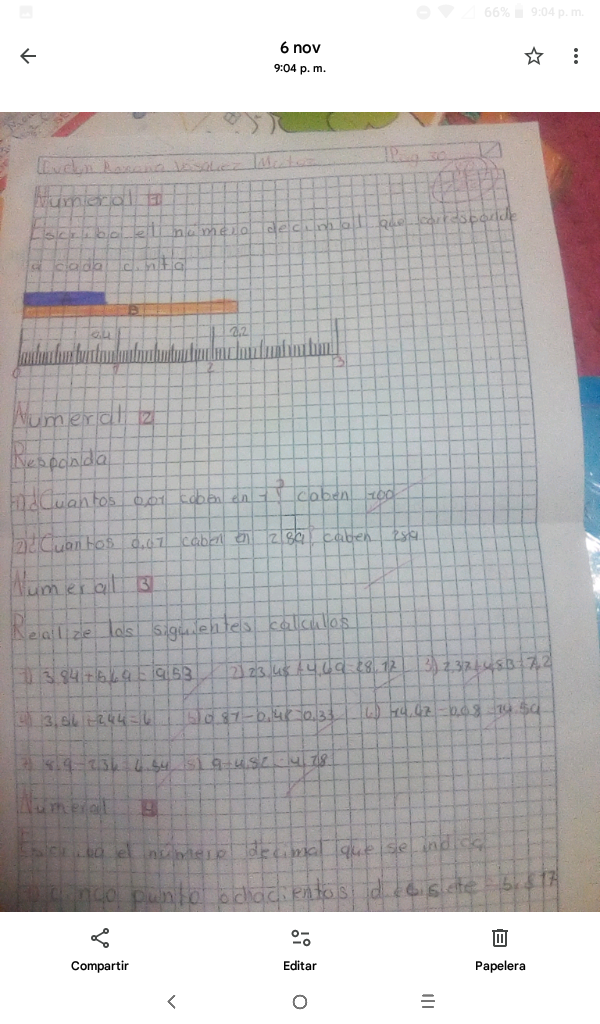 66% 9:04 p. m.
6 nov
9:04 p. m.
Numeral 1
Escriba el número decimal que corresponde
a cada cinta
B
0.4 2.2
0 1 2 3
Numeral 2
Responda
1) ¿Cuantos 0.01 caben en 1? caben 100
2) ¿Cuantos 0.01 caben en 2.89? caben 289
Numeral 3
Realize los siguientes calculos
1) 3.84+5.69=9.53 2) 23.45+4.69=28.12 3) 2.37+4.83=7.2
4) 3.56+2.44=6 5) 0.87-0.48=0.33 6) 14.62-0.08=14.54
7) 8.9-2.36=6.54 8) 9-4.82=4.78
Numeral 4
Escriba el número decimal que se indica
cinco punto ochocientos diecisiete = 5.817
Compartir Editar Papelera